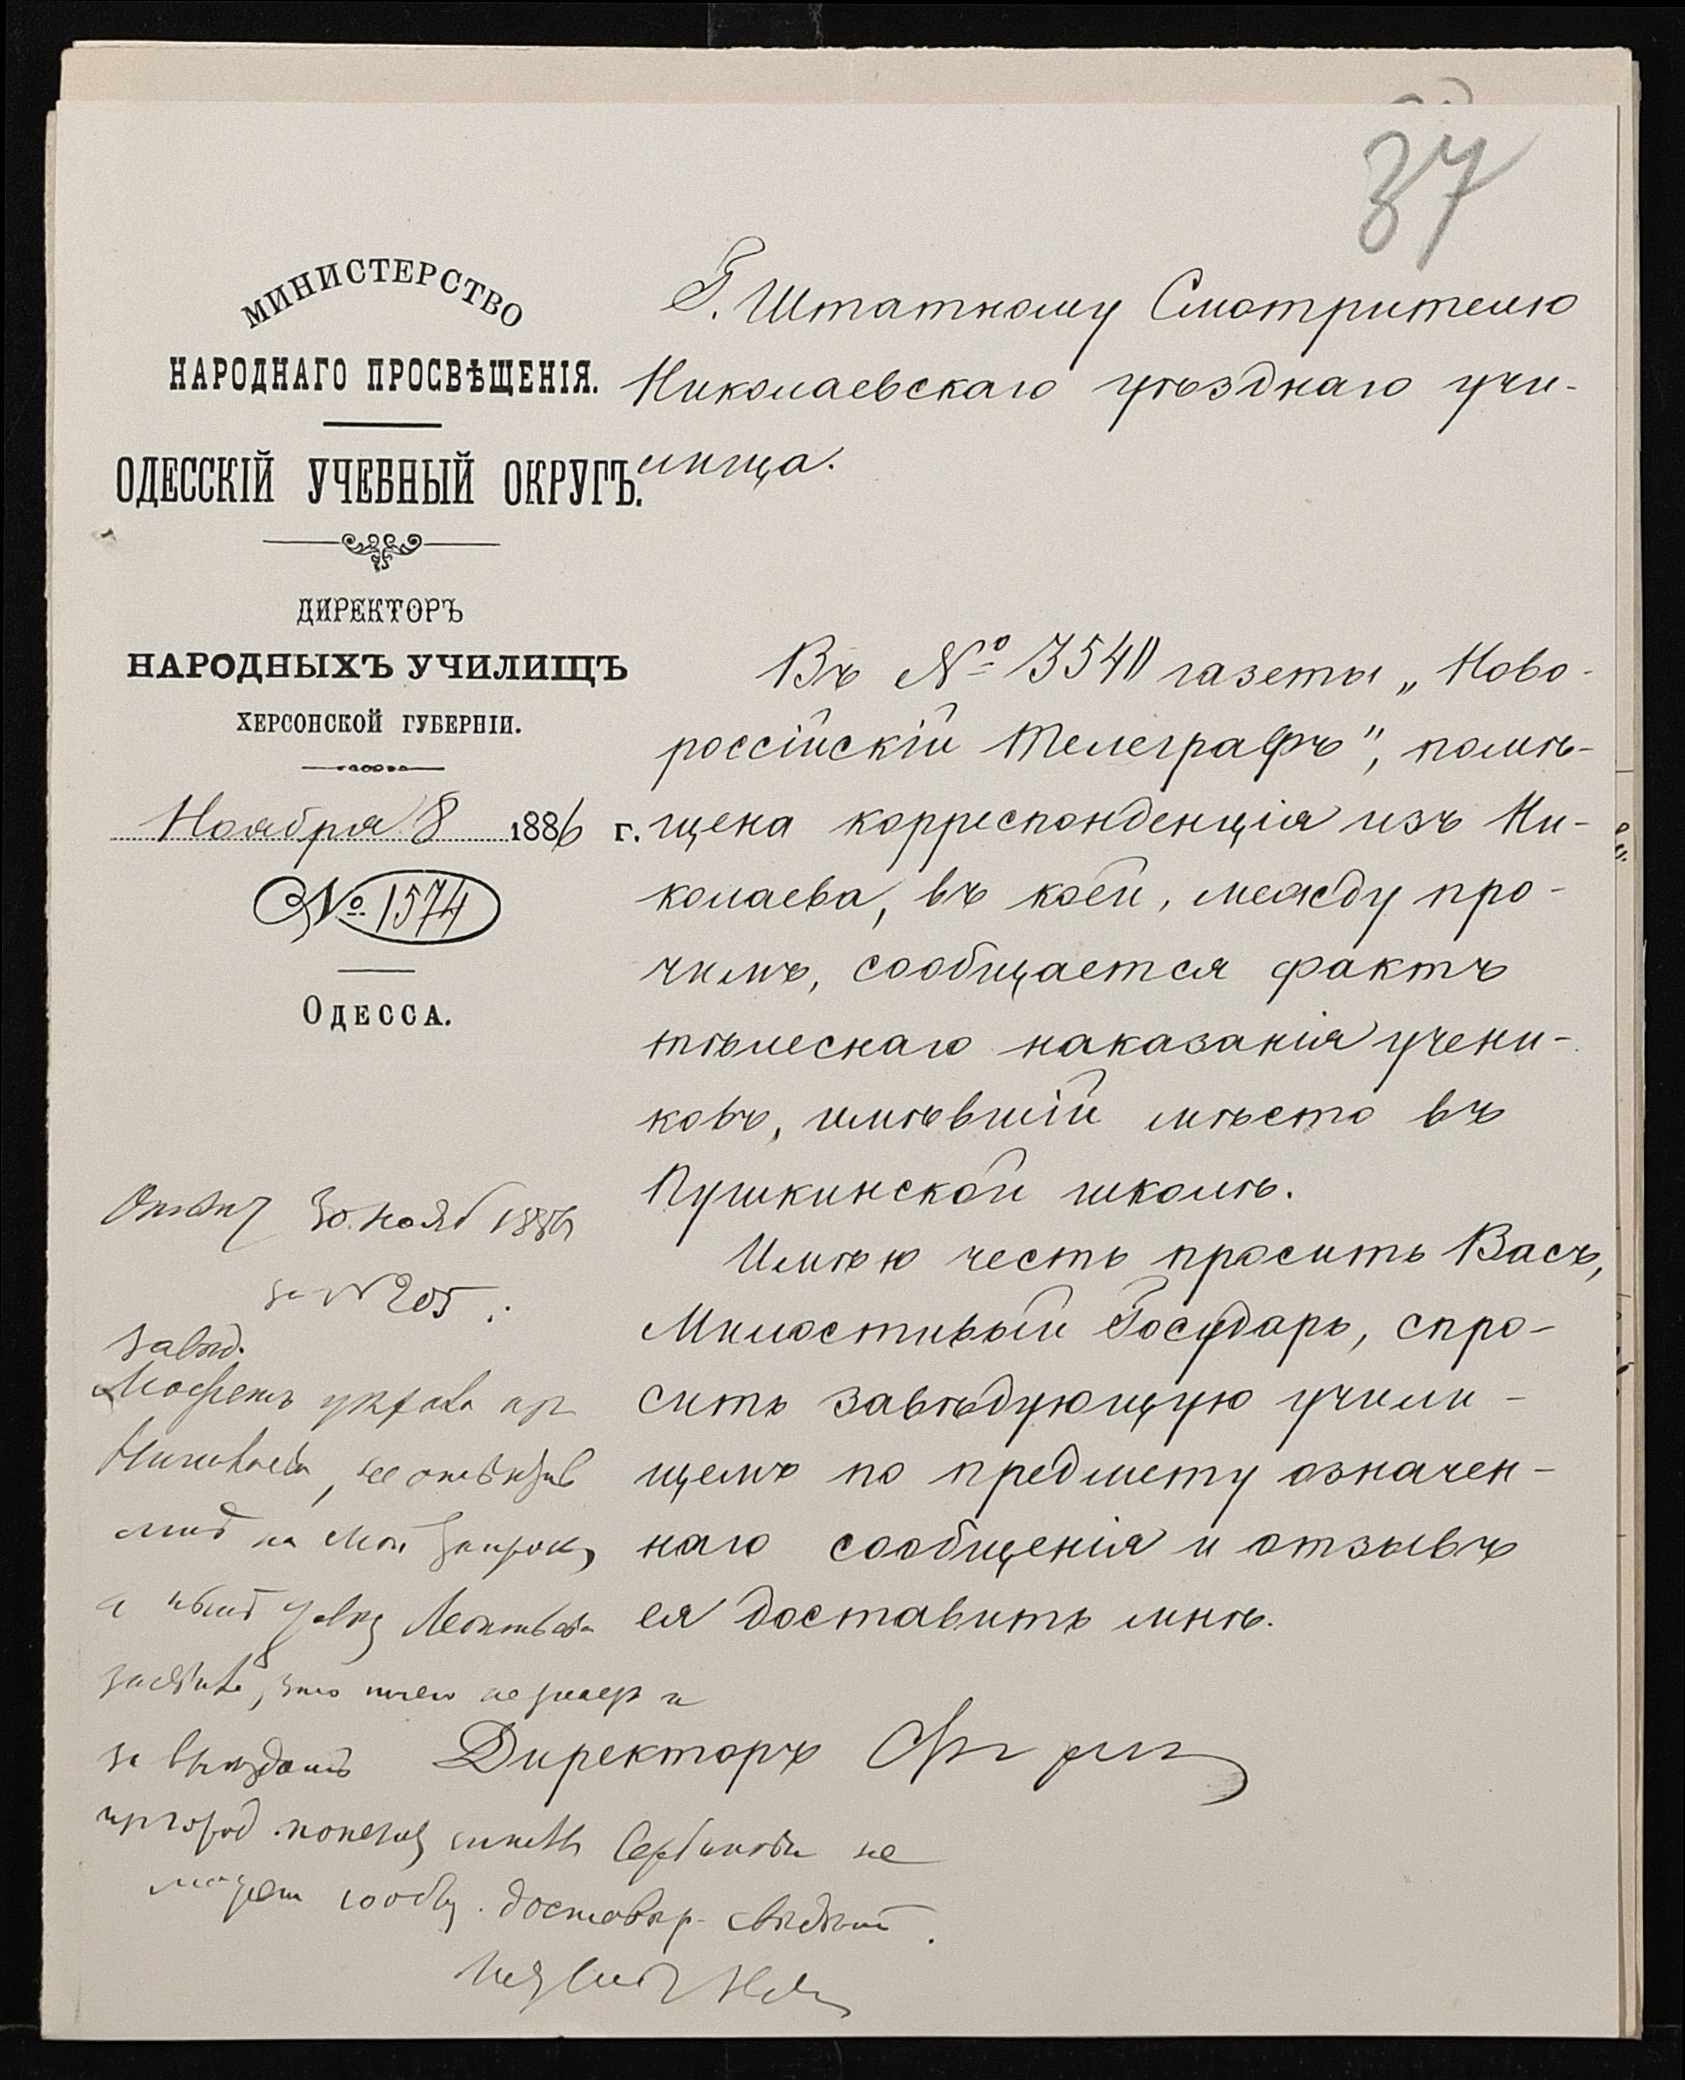 37
МИНИСТЕРСТВО
НАРОДНАГО ПРОСВѢЩЕНІЯ.
ОДЕССКІЙ УЧЕБНЫЙ ОКРУГЪ.
ДИРЕКТОРЪ
НАРОДНЫХЪ УЧИЛИЩЪ
ХЕРСОНСКОЙ ГУБЕРНІИ.
Ноября 8 1886 г.
№ 1574
ОДЕССА.
Г. Штатному Смотрителю
Николаевскаго уѣзднаго учи-
лища.
Въ № 3540 газеты „Ново-
россійскій Телеграфъ", помѣ-
щена корреспонденція изъ Ни-
колаева, въ коей, между про-
чимъ, сообщается фактъ
тѣлеснаго наказанія учени-
ковъ, имѣвшій мѣсто въ
Пушкинской школѣ.
Имѣю честь просить Васъ,
Милостивый Государь, спро-
сить завѣдующую учили-
щемъ по предмету означен-
наго сообщенія и отзывъ
ея доставить мнѣ.
Директоръ
30 нояб 1886
за № 205
завѣд.
на мой запрос,
а
что ничего не знает и
не
может сообщ. достовѣр. свѣдѣній.